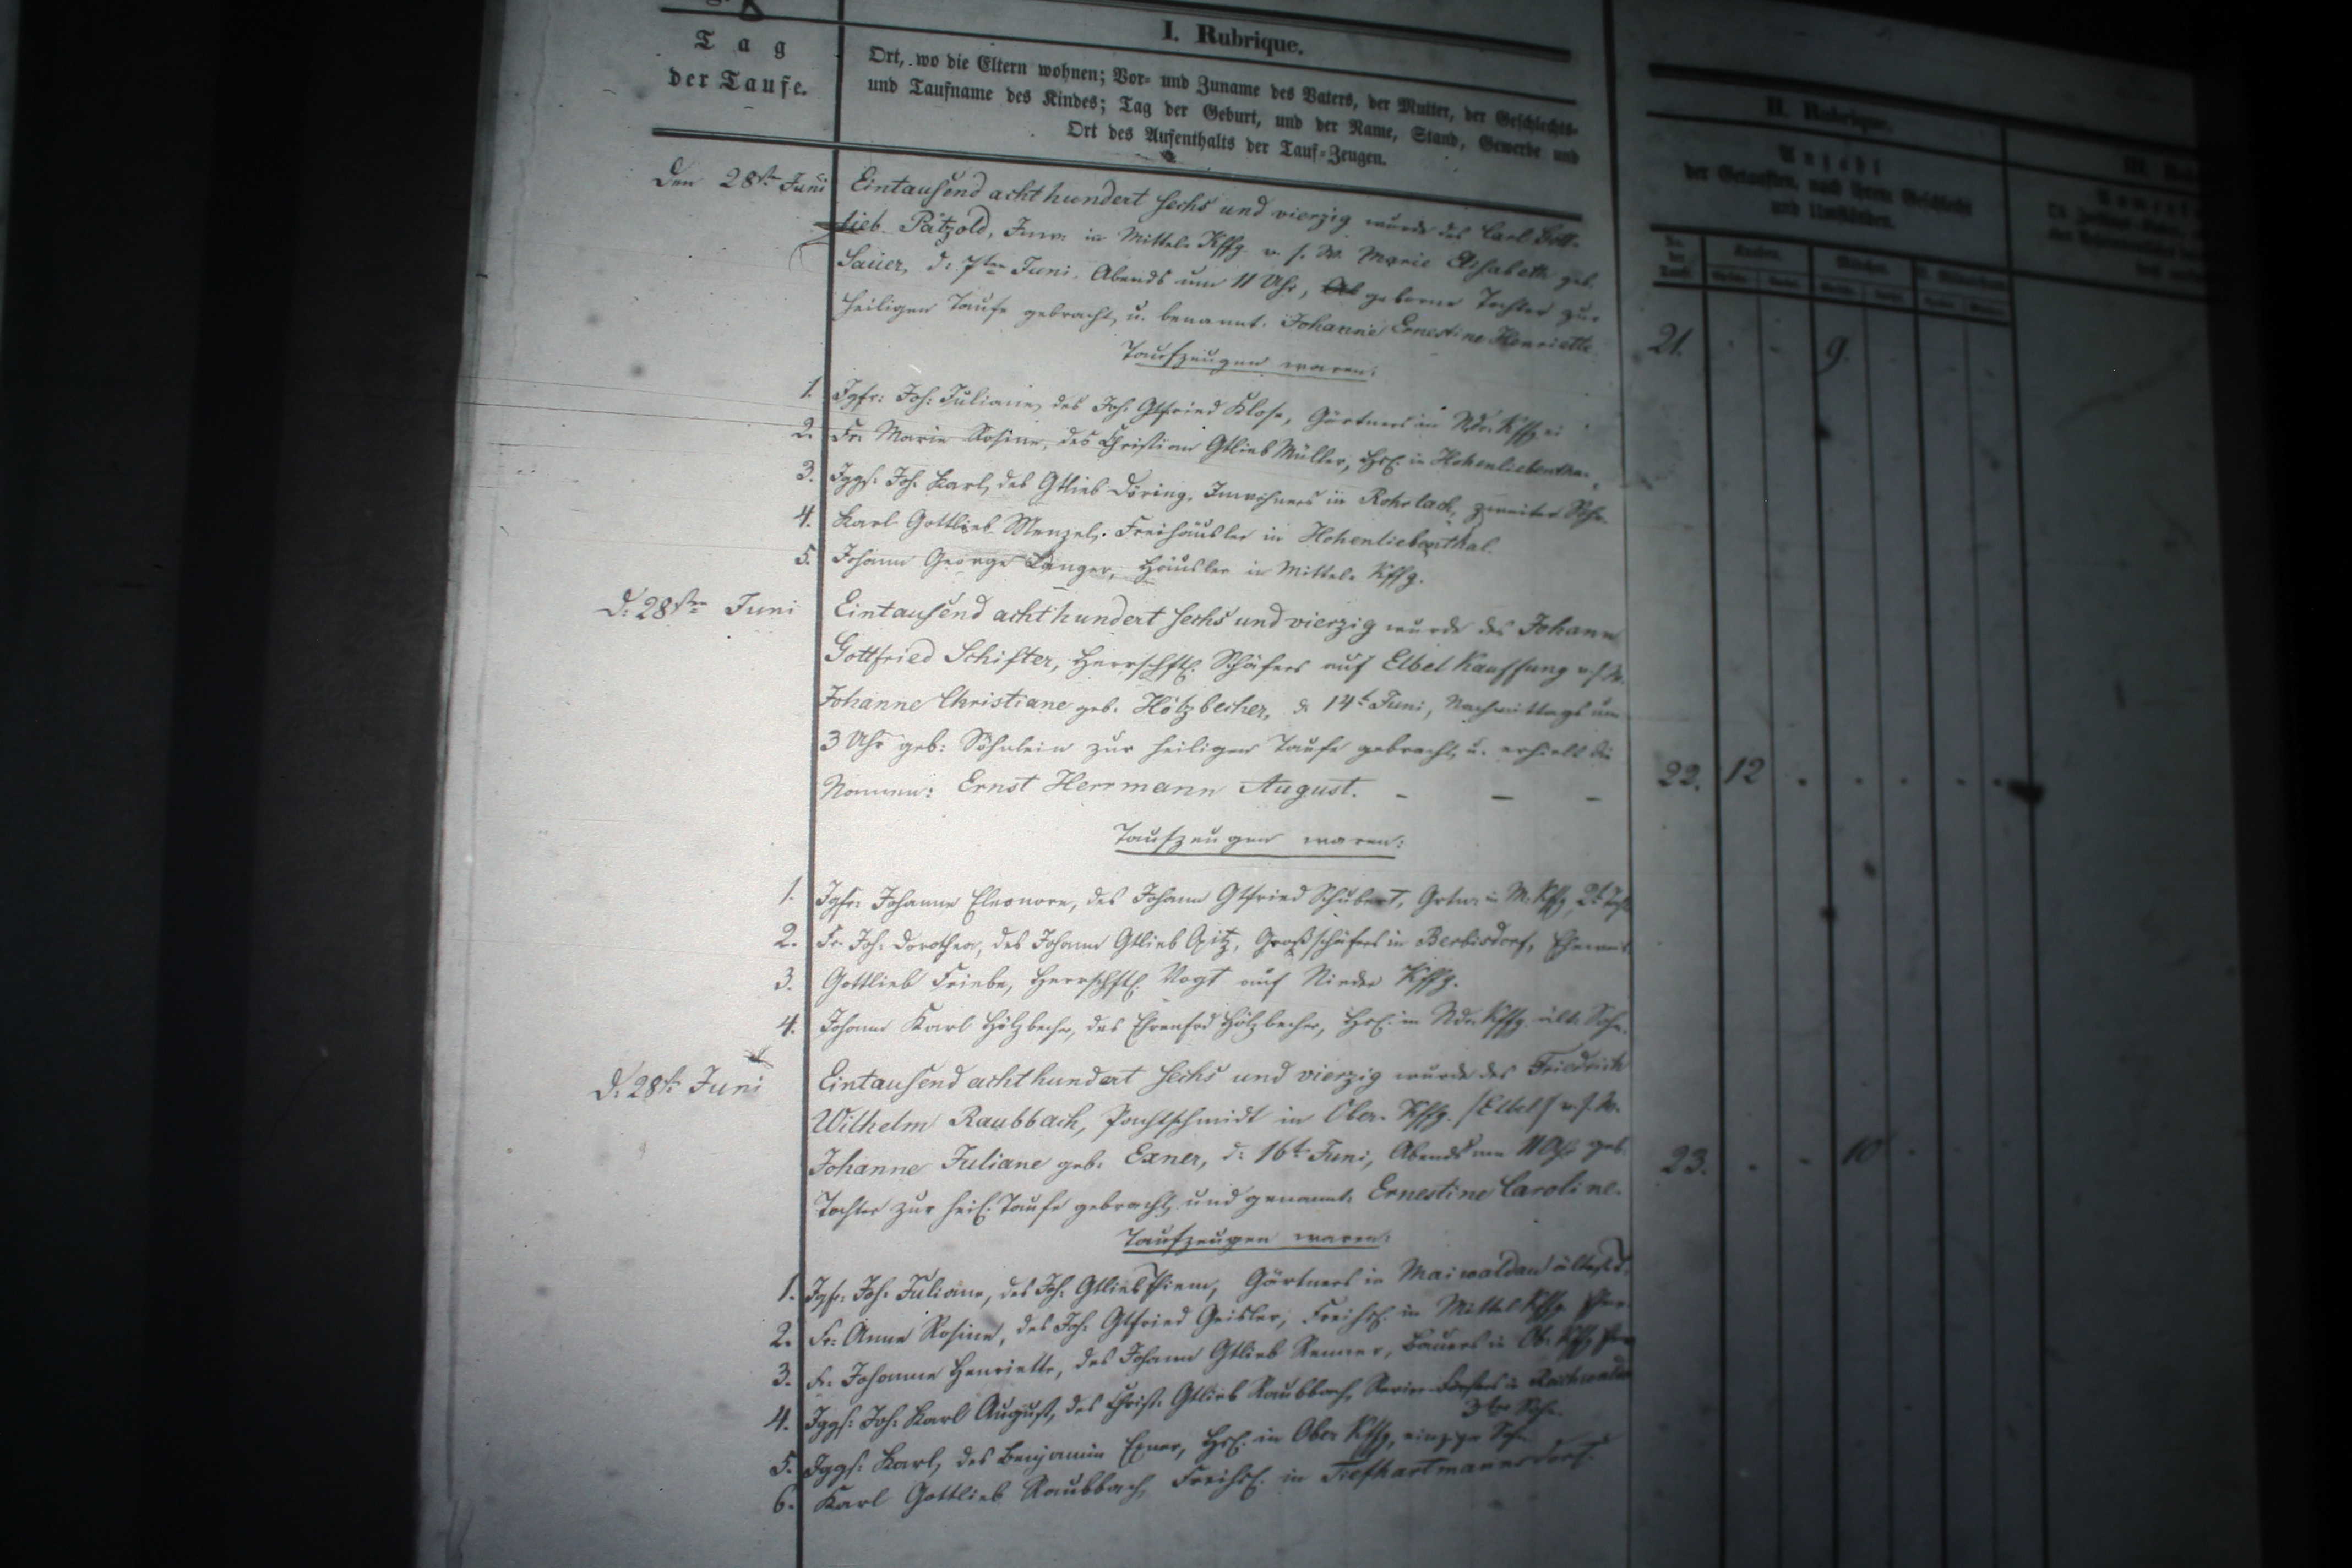 Tag
der Taufe.
I. Rubrique.
Ort, wo die Eltern wohnen; Vor- und Zuname des Vaters, der Mutter, der Geschlechts-
und Taufname des Kindes; Tag der Geburt, und der Name, Stand, Gewerbe und
Ort des Aufenthalts der Tauf-Zeugen.
II. Rubrique.
Anzahl
der Getauften, nach ihrem Geschlecht
und Umständen.
No. der Taufe
Knaben.
Mädchen.
Den 28st. Juni
Eintausend acht hundert sechs und vierzig wurde des Carl Gott-
lieb Pätzold, Inw. in Mittel-Kffg. u. s. W. Marie Elisabeth geb.
Sauer, d. 7ten Juni, Abends um 11 Uhr, geborne Tochter zur
heiligen Taufe gebracht, u. benannt: Johanne Ernestine Henriette.
21. 9.
Taufzeugen waren:
1. Jgfr: Joh: Juliane, des Joh. Gtfried Klose, Gärtners in Ndr. Kffg.
2. Fr. Marie Rosine, des Christian Gtlieb Müller, Hsl. in Hohenliebenthal
3. Jggs. Joh. Karl, des Gtlieb Döring, Inwohners in Rohrlach, zweiter Sohn.
4. Karl Gottlieb Menzel, Freihäusler in Hohenliebenthal.
5. Johann George Langer, Häusler in Mittel-Kffg.
d. 28sten Juni
Eintausend acht hundert sechs und vierzig wurde des Johann
Gottfried Schifter, Herrschftl. Schäfers auf Elbel Kauffung u. s. W.
Johanne Christiane geb. Hölzbecher, d. 14t Juni, Nachmittags um
3 Uhr geb: Söhnlein zur heiligen Taufe gebracht, u. erhielt die
Namen: Ernst Herrmann August. – – –
22. 12
Taufzeugen waren:
1. Jgfr: Johanne Eleonore, des Johann Gtfried Schubert, Grtn. in M. Kffg. 2t Tocht
2. Fr. Joh: Dorothea, des Johann Gtlieb Opitz, Großschäfers in Berbisdorf, Eheweib.
3. Gottlieb Friebe, Herrschftl. Vogt auf Nieder Kffg.
4. Johann Karl Hölzbecher, des Ehrenfrd Hölzbecher, Hsl. in Ndr. Kffg. ält. Sohn.
d. 28st. Juni
Eintausend acht hundert sechs und vierzig wurde des Friedrich
Wilhelm Raubbach, Pachtschmidt in Ober-Kffg. /Elbel/ u. s. W.
Johanne Juliane geb. Exner, d. 16t Juni, Abends um 11 Uhr geb.
Tochter zur heil. Taufe gebracht, und genannt: Ernestine Caroline.
23. 10
Taufzeugen waren:
1. Jgfr. Joh. Juliane, des Joh. Gtlieb Thiem, Gärtners in Maiwaldau älteste T.
2. Fr. Anna Rosine, des Joh. Gtfried Geisler, Freihsl. in Mittel Kffg.
3. Fr. Johanne Henriette, des Johann Gtlieb Renner, Bauers in Ob. Kffg.
4. Jggs: Joh. Karl August, des Christ. Gtlieb Raubbach, Revier-Försters in
3ter Sohn.
5. Jggs. Karl, des Benjamin Exner, Hsl. in Ober Kffg, einziger Sohn
6. Karl Gottlieb Raubbach, Freihsl. in Tiefhartmannsdorf.